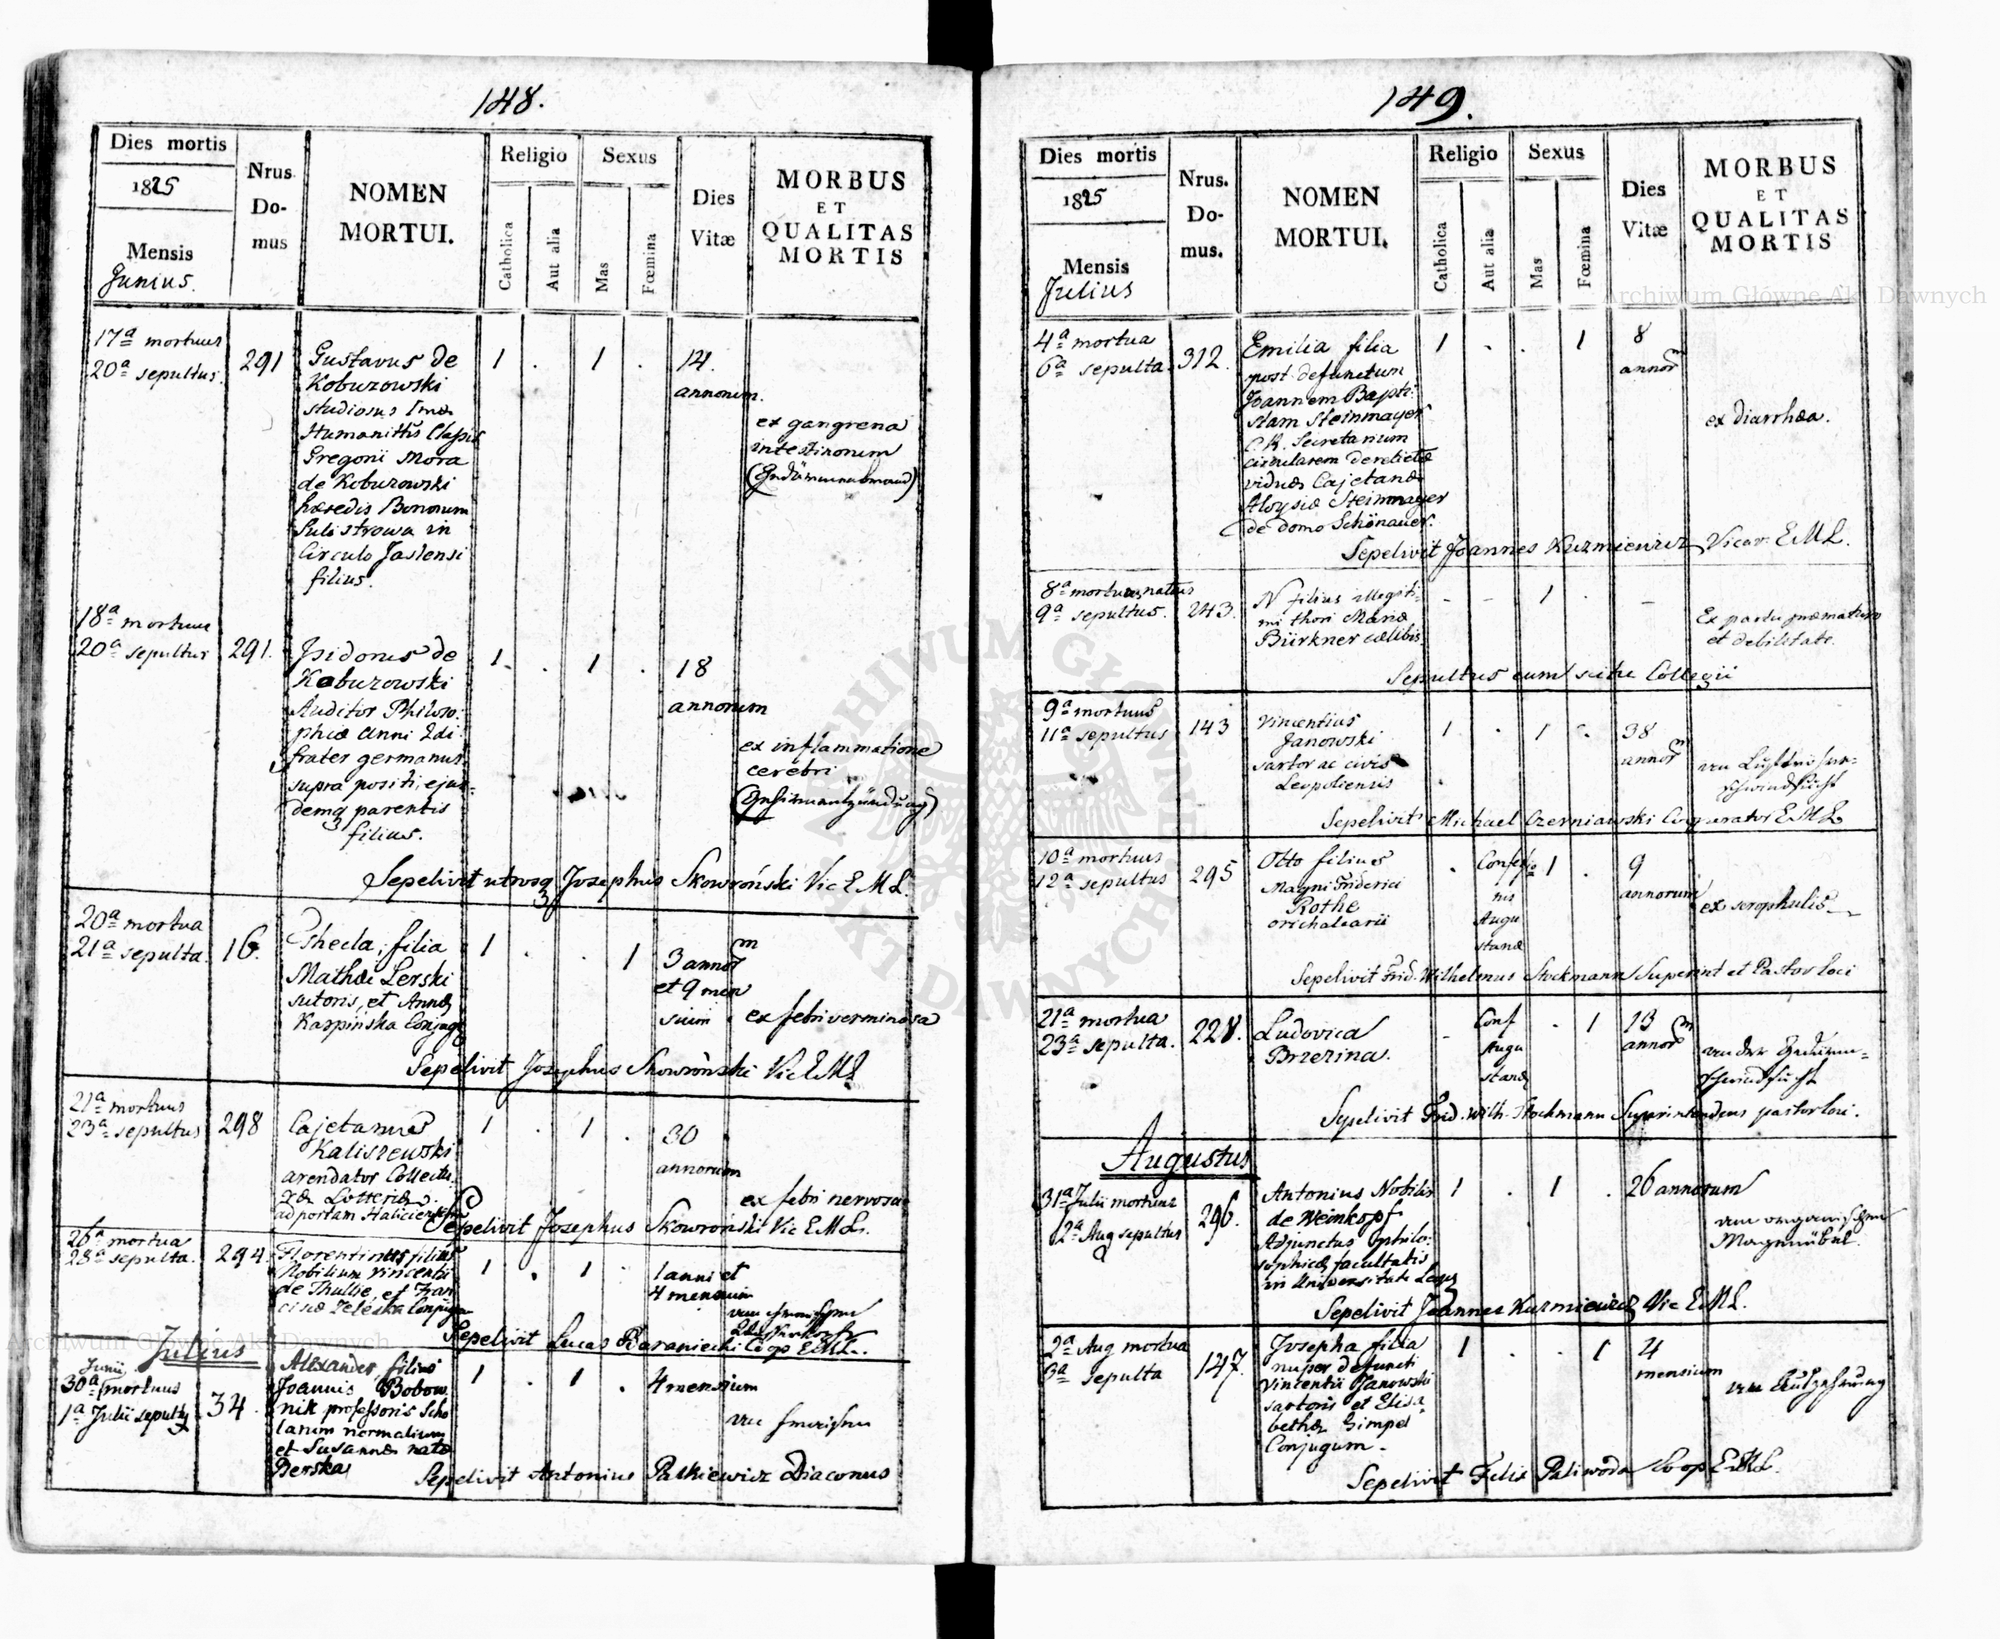 148.
Dies mortis
1825
Mensis
Junius.
Nrus
Do-
mus
NOMEN
MORTUI.
Religio
Catholica
Aut alia
Sexus
Mas
Fœmina
Dies
Vitæ
MORBUS
ET
QUALITAS
MORTIS
17ª mortuus
20ª sepultus.
291
Gustavus de
Kobuzowski
studiosus Imæ
Humanittis Classis
Gregorii Mora
de Kobuzowski
hæredis Bonorum
Sulistrowa in
Circulo Jaslensi
filius.
1 . 1 .
14.
annorum.
ex gangrena
intestinorum
18ª mortuus
20ª sepultus
291.
Isidorus de
Kobuzowski
Auditor Philoso:
phiæ Anni 2di
frater germanus
supra positi, ejus=
demq parentis
filius.
1 . 1 .
18
annorum
ex inflammatione
cerebri
(Gehirnentzündung)
Sepelivit utrosq Josephus Skowroński Vic E. M. L.
20ª mortua
21ª sepulta.
16.
Thecla filia
Mathæi Lerski
sutoris, et Annæ
Karpińska Conjugū
1 . . 1
3 annorm
et 9 men
sium
ex febri verminosa
Sepelivit Josephus Skowroński Vic E M L
21ª mortuus
23ª sepultus
298
Cajetanus
Kaliszewski
arendator Collectu
ræ Lotteriæ
ad portam Haliciensem
1 . 1 .
30
annorum
ex febri nervosa
Sepelivit Josephus Skowroński Vic E. M. L.
26ª mortua
28ª sepulta.
294
Florentinus filius
Nobilium Vincentii
de Thullie, et Fran
ciscæ Zeleska Conjugū
1 . 1 .
1 anni et
4 mensium
Sepelivit Lucas Baraniecki Coop E. M. L.
Julius
Junii
30ª mortuus
1ª Julii sepults
34.
Alexander filius
Joannis Bobow
nik professoris Scho
larum normalium
et Susannæ nata
Berska
1 . 1 .
4 mensium
Sepelivit Antonius Paskiewicz Diaconus
149.
Dies mortis
1825
Mensis
Julius
Nrus.
Do-
mus.
NOMEN
MORTUI.
Religio
Catholica
Aut alia
Sexus
Mas
Fœmina
Dies
Vitæ
MORBUS
ET
QUALITAS
MORTIS
4ª mortua
6ª sepulta
312.
Emilia filia
post defunctum
Joannem Bapti:
stam Steinmayer
C. R. Secretarium
circularem derelictæ
viduæ Cajetanæ
Aloysiæ Steinmayer
de domo Schönauer.
1 . . 1
8
annorm
ex diarrhæa.
Sepelivit Joannes Kuzmiewicz Vicar: E. M. L.
8ª mortuus natus
9ª sepultus.
243.
N filius illegiti-
mi thori Mariæ
Bürkner cælibis
- - 1 . -
Ex partu præmaturo
et debilitate.
Sepultus cum scitu Collegii
9ª mortuus
11ª sepultus
143
Vincentius
Janowski
sartor ac civis
Leopoliensis
1 . 1 .
38
annorm
Sepelivit Michael Czerniawski Cooperator E M L
10ª mortuus
12ª sepultus
295
Otto filius
Magni Friderici
Rothe
orichalcarii
. Confessio
nis
Augu
stanæ
1 .
9
annorum
ex scrophulis
Sepelivit Frid. Wilhelmus Stockmann Superint et Pastor loci
21ª mortua
23ª sepulta.
228.
Ludovica
Brzezina.
- Conf
Augu
stanæ
. 1
13
annorm
Sepelivit Frid. Wilh. Stockmann Superintendens pastor loci.
Augustus
31ª Julii mortuus
2ª Aug sepultus
296.
Antonius Nobilis
de Weinkopf
Adjunctus philo:
sophicæ facultatis
in Universitate Leop
1 . 1 .
26 annorum
Sepelivit Joannes Kuzmiewicz Vic E M L.
2ª Aug mortua
3ª sepulta
147.
Josepha filia
nuper defuncti
Vincentii Janowski
sartoris et Elisa-
bethæ Gimpel
Conjugum.
1 . . 1
4
mensium
Sepelivit Felix Paliwoda Coop E. M. L.
Archiwum Główne Akt Dawnych
ARCHIWUM GŁÓWNE AKT DAWNYCH
Archiwum Główne Akt Dawnych